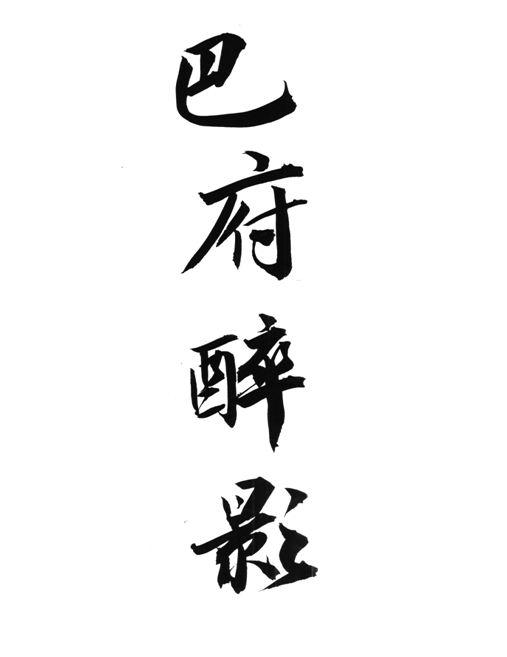 巴府醉影